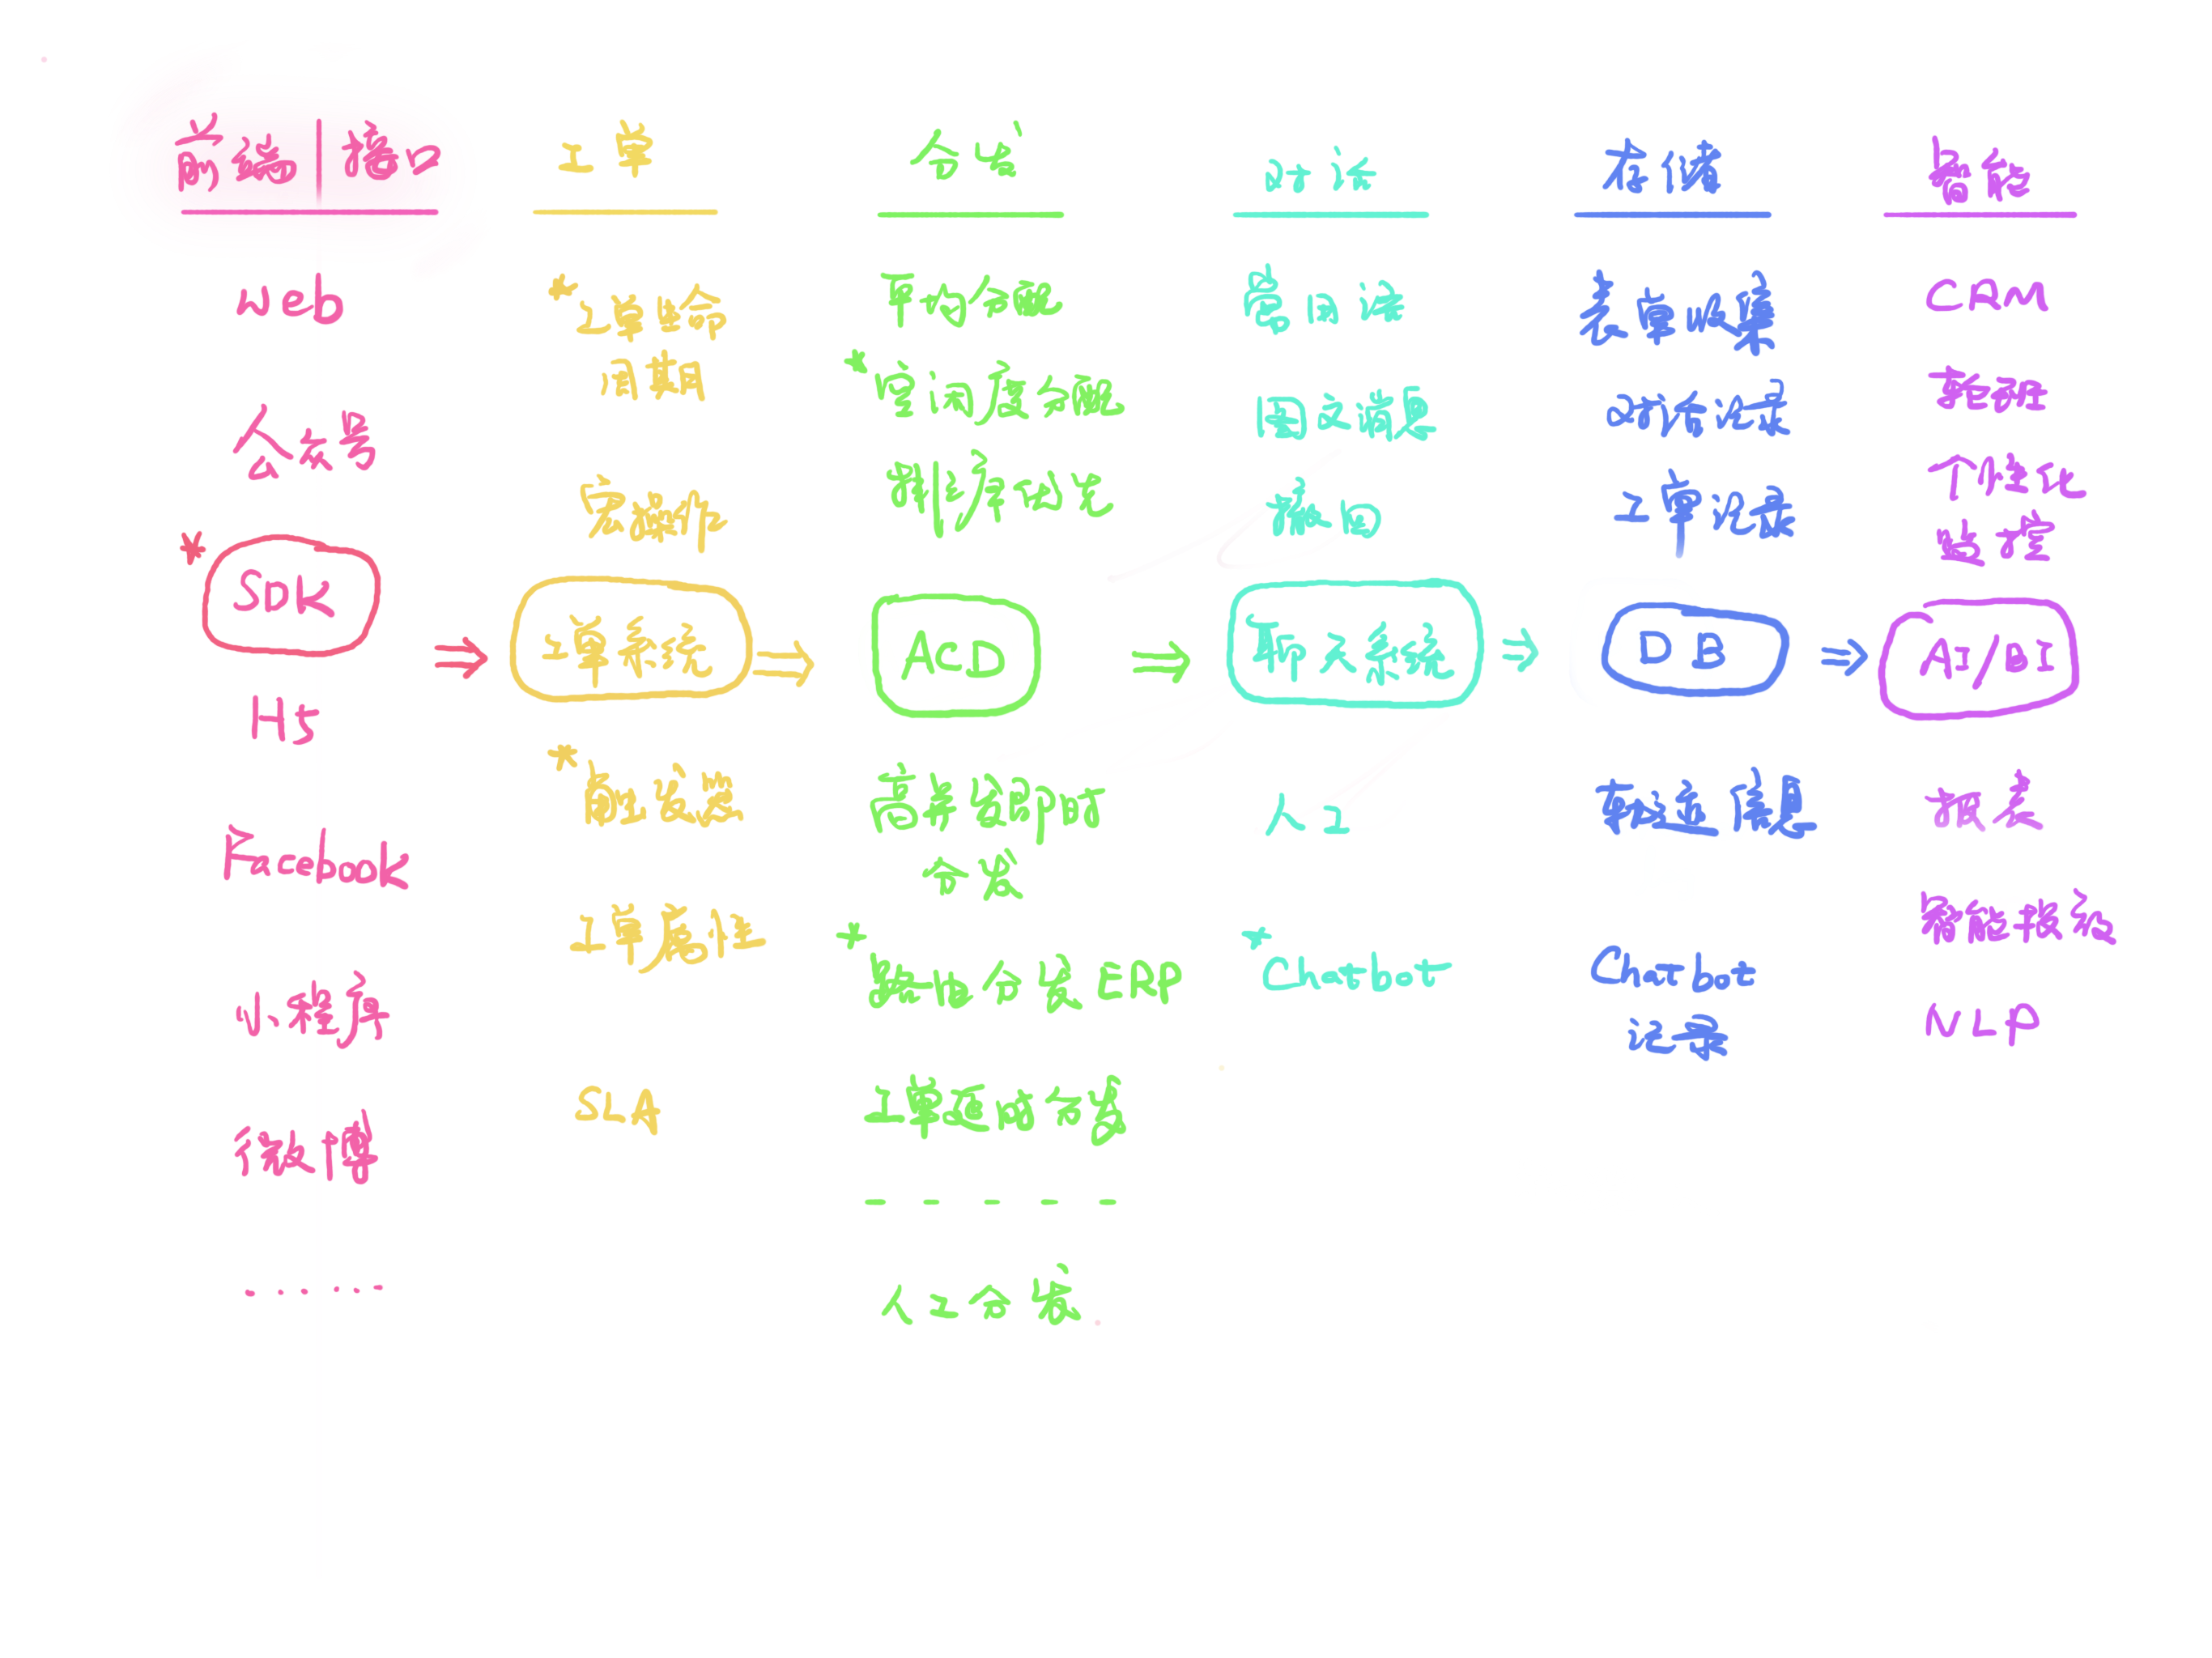 前端|接口
Web
公众号
* SDK
H5
Facebook
小程序
微博
......
⇒
工单
* 工单生命
周期
宏操作
工单系统
* 触发器
工单属性
SLA
⇒
分发
平均分配
* 空闲度分配
排序优先
ACD
高并发即时
分发
* 路由分发ERP
工单延时分发
- - - - -
人工分发
⇒
对话
常用语
图文消息
撤回
聊天系统
人工
* Chatbot
⇒
存储
表单收集
对话记录
工单记录
DB
信息
Chatbot
记录
⇒
智能
CRM
轮班
个性化
监控
AI/BI
报表
智能
NLP